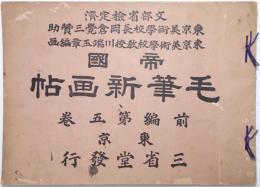 文部省檢定濟
東京美術學校長岡倉覺三賛助
東京美術學校教授川端玉章編画
帝國
毛筆新画帖
前編第五卷
東京
三省堂發行